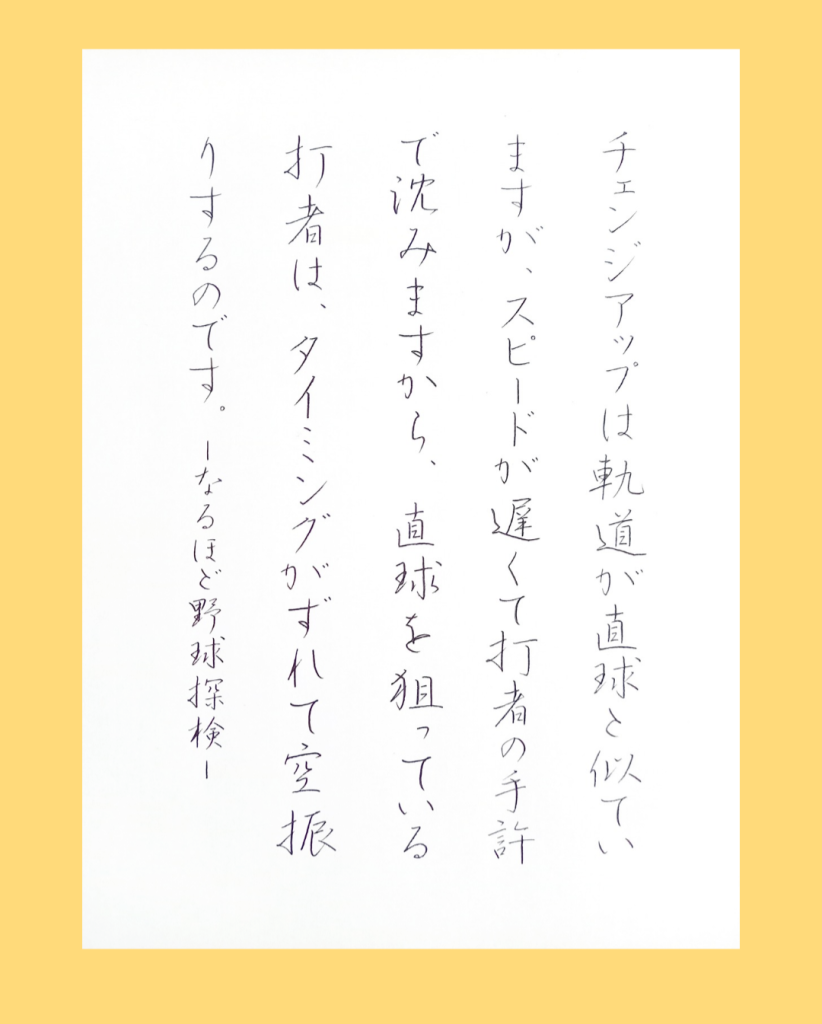 チェンジアップは軌道が直球と似てい
ますが、スピードが遅くて打者の手許
で沈みますから、直球を狙っている
打者は、タイミングがずれて空振
りするのです。ーなるほど野球探検ー